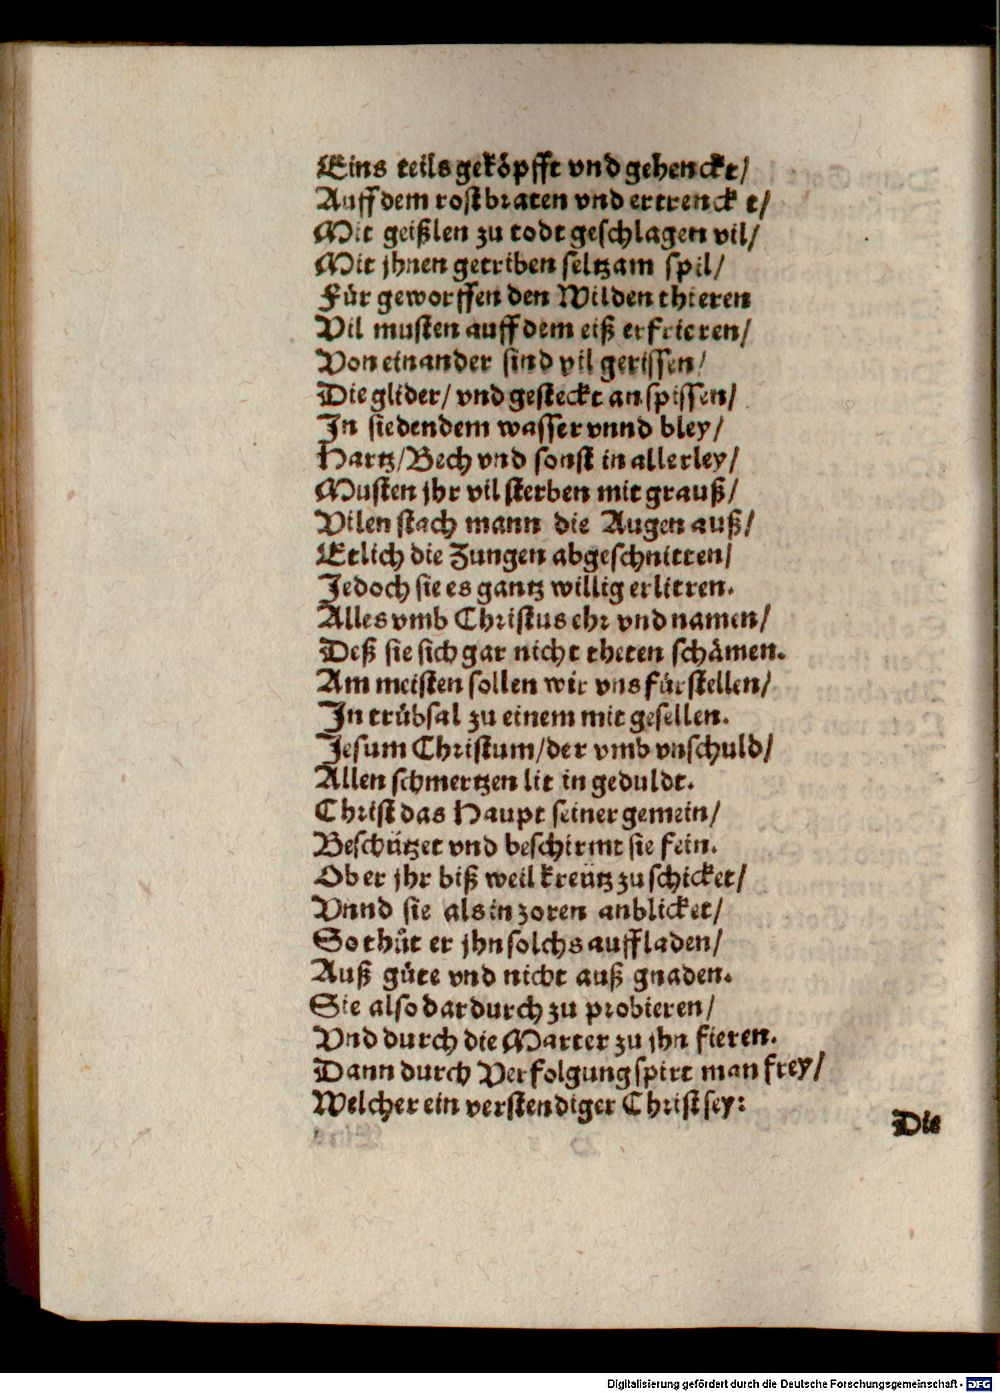 Eins teils geköpfft vnd gehenckt/
Auff dem rost braten vnd ertrenckt/
Mit geißlen zu todt geschlagen vil/
Mit jhnen getriben seltzam spil/
Für geworffen den Wilden thieren
Vil musten auff dem eiß erfrieren/
Von einander sind vil gerissen/
Die glider/ vnd gesteckt an spissen/
In siedendem wasser vnnd bley/
Hartz/Bech vnd sonst in allerley/
Musten jhr vil sterben mit grauß/
Vilen stach mann die Augen auß/
Etlich die Zungen abgeschnitten/
Jedoch sie es gantz willig erlitten.
Alles vmb Christus ehr vnd namen/
Deß sie sich gar nicht theten schämen.
Am meisten sollen wir vns fürstellen/
In trübsal zu einem mit gesellen.
Jesum Christum/der vmb vnschuld/
Allen schmertzen lit in geduldt.
Christ das Haupt seiner gemein/
Beschützet vnd beschirmt sie fein.
Ob er jhr biß weil kreütz zu schicket/
Vnnd sie als in zoren anblicket/
So thůt er jhn solchs auffladen/
Auß güte vnd nicht auß gnaden.
Sie also dardurch zu probieren/
Vnd durch die Marter zu jhn fieren.
Dann durch Verfolgung spirt man frey/
Welcher ein verstendiger Christ sey:
Die
Digitalisierung gefördert durch die Deutsche Forschungsgemeinschaft - DFG